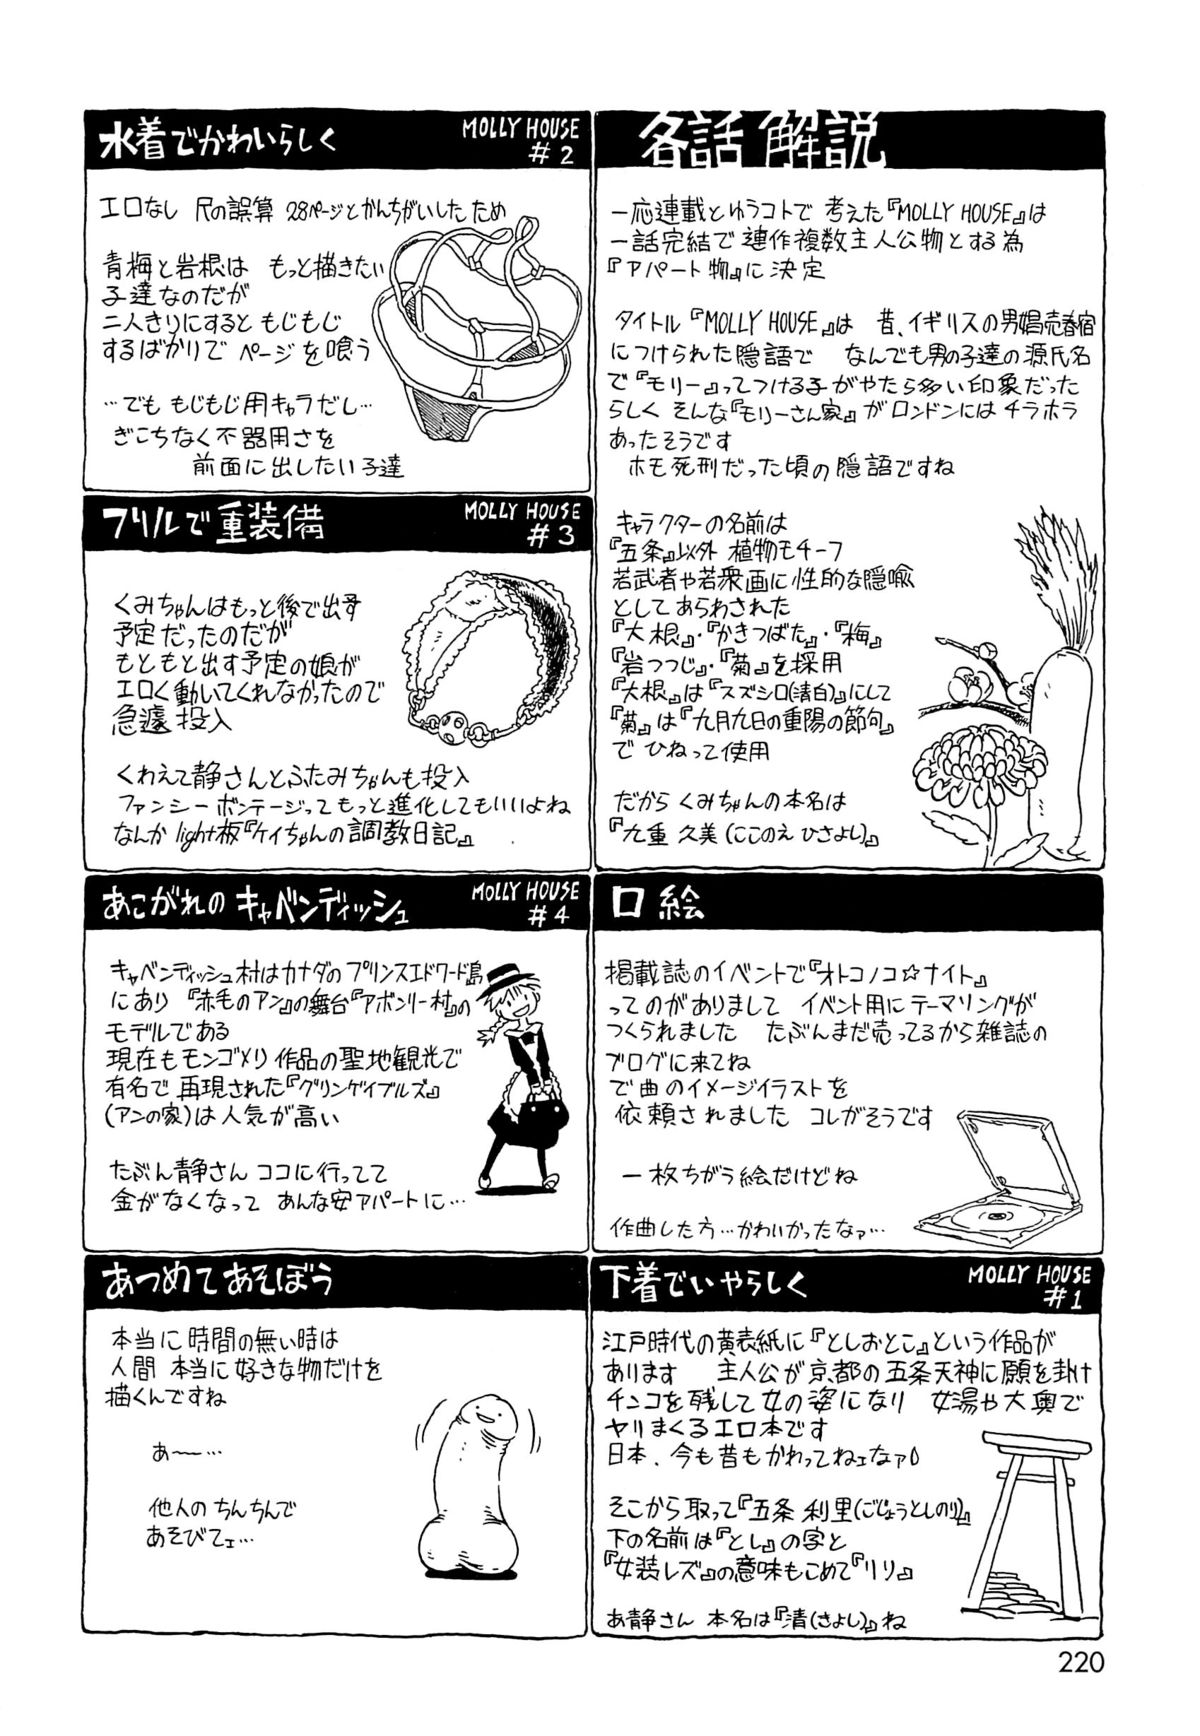 各話 解説
一応連載とゆうコトで 考えた『MOLLY HOUSE』は
一話完結で 連作複数主人公物とする為
『アパート物』に 決定
タイトル『MOLLY HOUSE』は 昔、イギリスの男娼売春宿
につけられた隠語で なんでも男の子達の源氏名
で『モリー』ってつける子がやたら多い印象だった
らしく そんな『モリーさん家』がロンドンには チラホラ
あったそうです
ホモ死刑だった頃の隠語ですね
キャラクターの名前は
『五条』以外 植物モチーフ
若武者や若衆画に性的な隠喩
としてあらわされた
『大根』・『かきつばた』・『梅』
『岩つつじ』・『菊』を採用
『大根』は『スズシロ(清白)』にして
『菊』は『九月九日の重陽の節句』
で ひねって使用
だから くみちゃんの本名は
『九重 久美(ここのえ ひさよし)』
口絵
掲載誌のイベントで『オトコノコ☆ナイト』
ってのがありまして イベント用にテーマソングが
つくられました たぶんまだ売ってるから雑誌の
ブログに来てね
で曲のイメージイラストを
依頼されました コレがそうです
一枚ちがう絵だけどね
作曲した方…かわいかったなァ…
下着でいやらしく MOLLY HOUSE #1
江戸時代の黄表紙に『としおとこ』という作品が
あります 主人公が京都の五条天神に願を掛け
チンコを残して女の姿になり 女湯や大奥で
ヤリまくるエロ本です
日本、今も昔もかわってねェなァ
そこから取って『五条 利里(ごじょうとしのり)』
下の名前は『とし』の字と
『女装レズ』の意味もこめて『リリ』
あ静さん 本名は『清(きよし)』ね
水着でかわいらしく MOLLY HOUSE #2
エロなし 尺の誤算 28ページとかんちがいしたため
青梅と岩根は もっと描きたい
子達なのだが
二人きりにすると もじもじ
するばかりで ページを喰う
…でも もじもじ用キャラだし…
ぎこちなく不器用さを
前面に出したい子達
フリルで重装備 MOLLY HOUSE #3
くみちゃんはもっと後で出す
予定だったのだが
もともと出す予定の娘が
エロく動いてくれなかったので
急遽 投入
くわえて静さんとふたみちゃんも投入
ファンシーボンテージってもっと進化してもいいよね
なんか light板『ケイちゃんの調教日記』
あこがれのキャベンディッシュ MOLLY HOUSE #4
キャベンディッシュ村はカナダのプリンスエドワード島
にあり 『赤毛のアン』の舞台『アボンリー村』の
モデルである
現在もモンゴメリ作品の聖地観光で
有名で 再現された『グリンゲイブルズ』
(アンの家)は人気が高い
たぶん静さん ココに行ってて
金がなくなって あんな安アパートに…
あつめてあそぼう
本当に時間の無い時は
人間 本当に好きな物だけを
描くんですね
あ〜…
他人のちんちんで
あそびてェ…
220